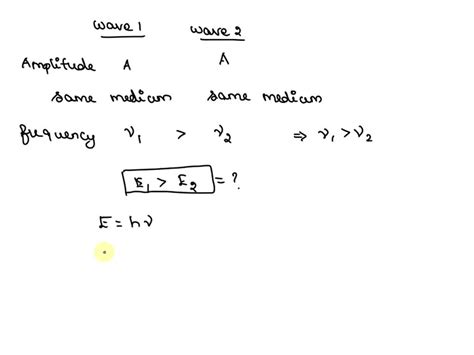 wave 1 wave 2
Amplitude A A
same medium same medium
frequency ν₁ > ν₂ ⇒ ν₁ > ν₂
E₁ > E₂ = ?
E = hν